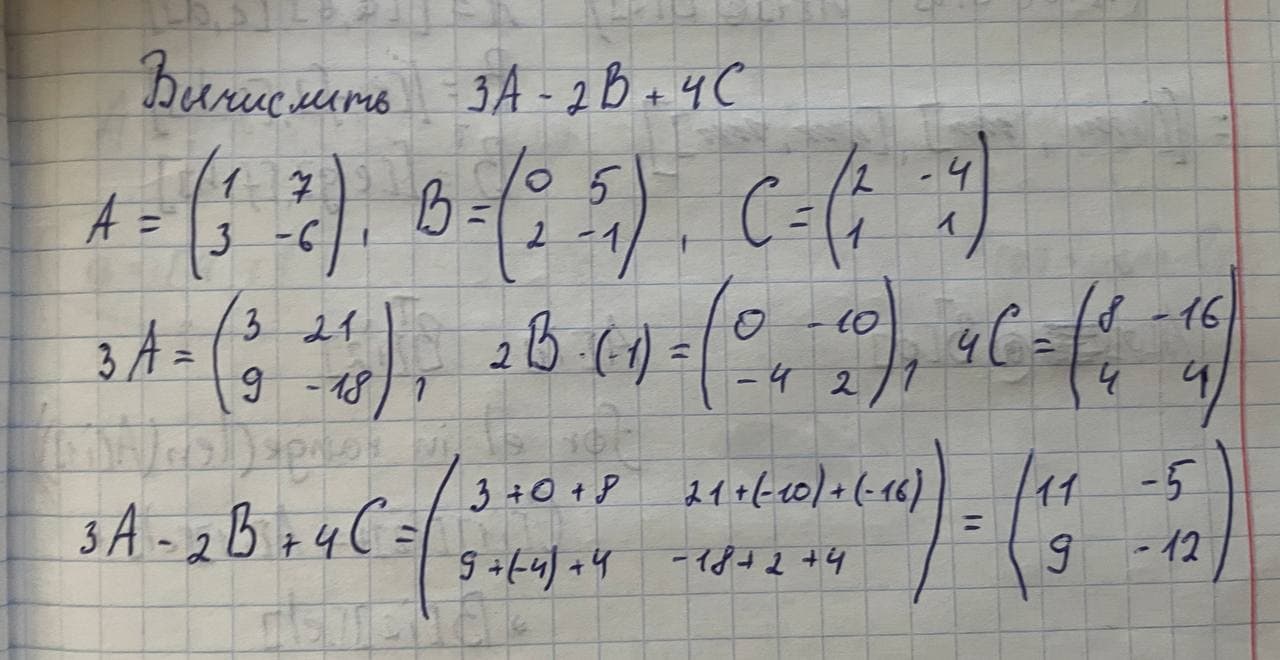 Вычислить 3A - 2B + 4C
A = (1 7
3 -6), B = (0 5
2 -1), C = (2 -4
1 1)
3A = (3 21
9 -18), 2B · (-1) = (0 -10
-4 2), 4C = (8 -16
4 4)
3A - 2B + 4C = (3 + 0 + 8 21 + (-10) + (-16)
9 + (-4) + 4 -18 + 2 + 4) = (11 -5
9 -12)
for el in range(len(A[i])